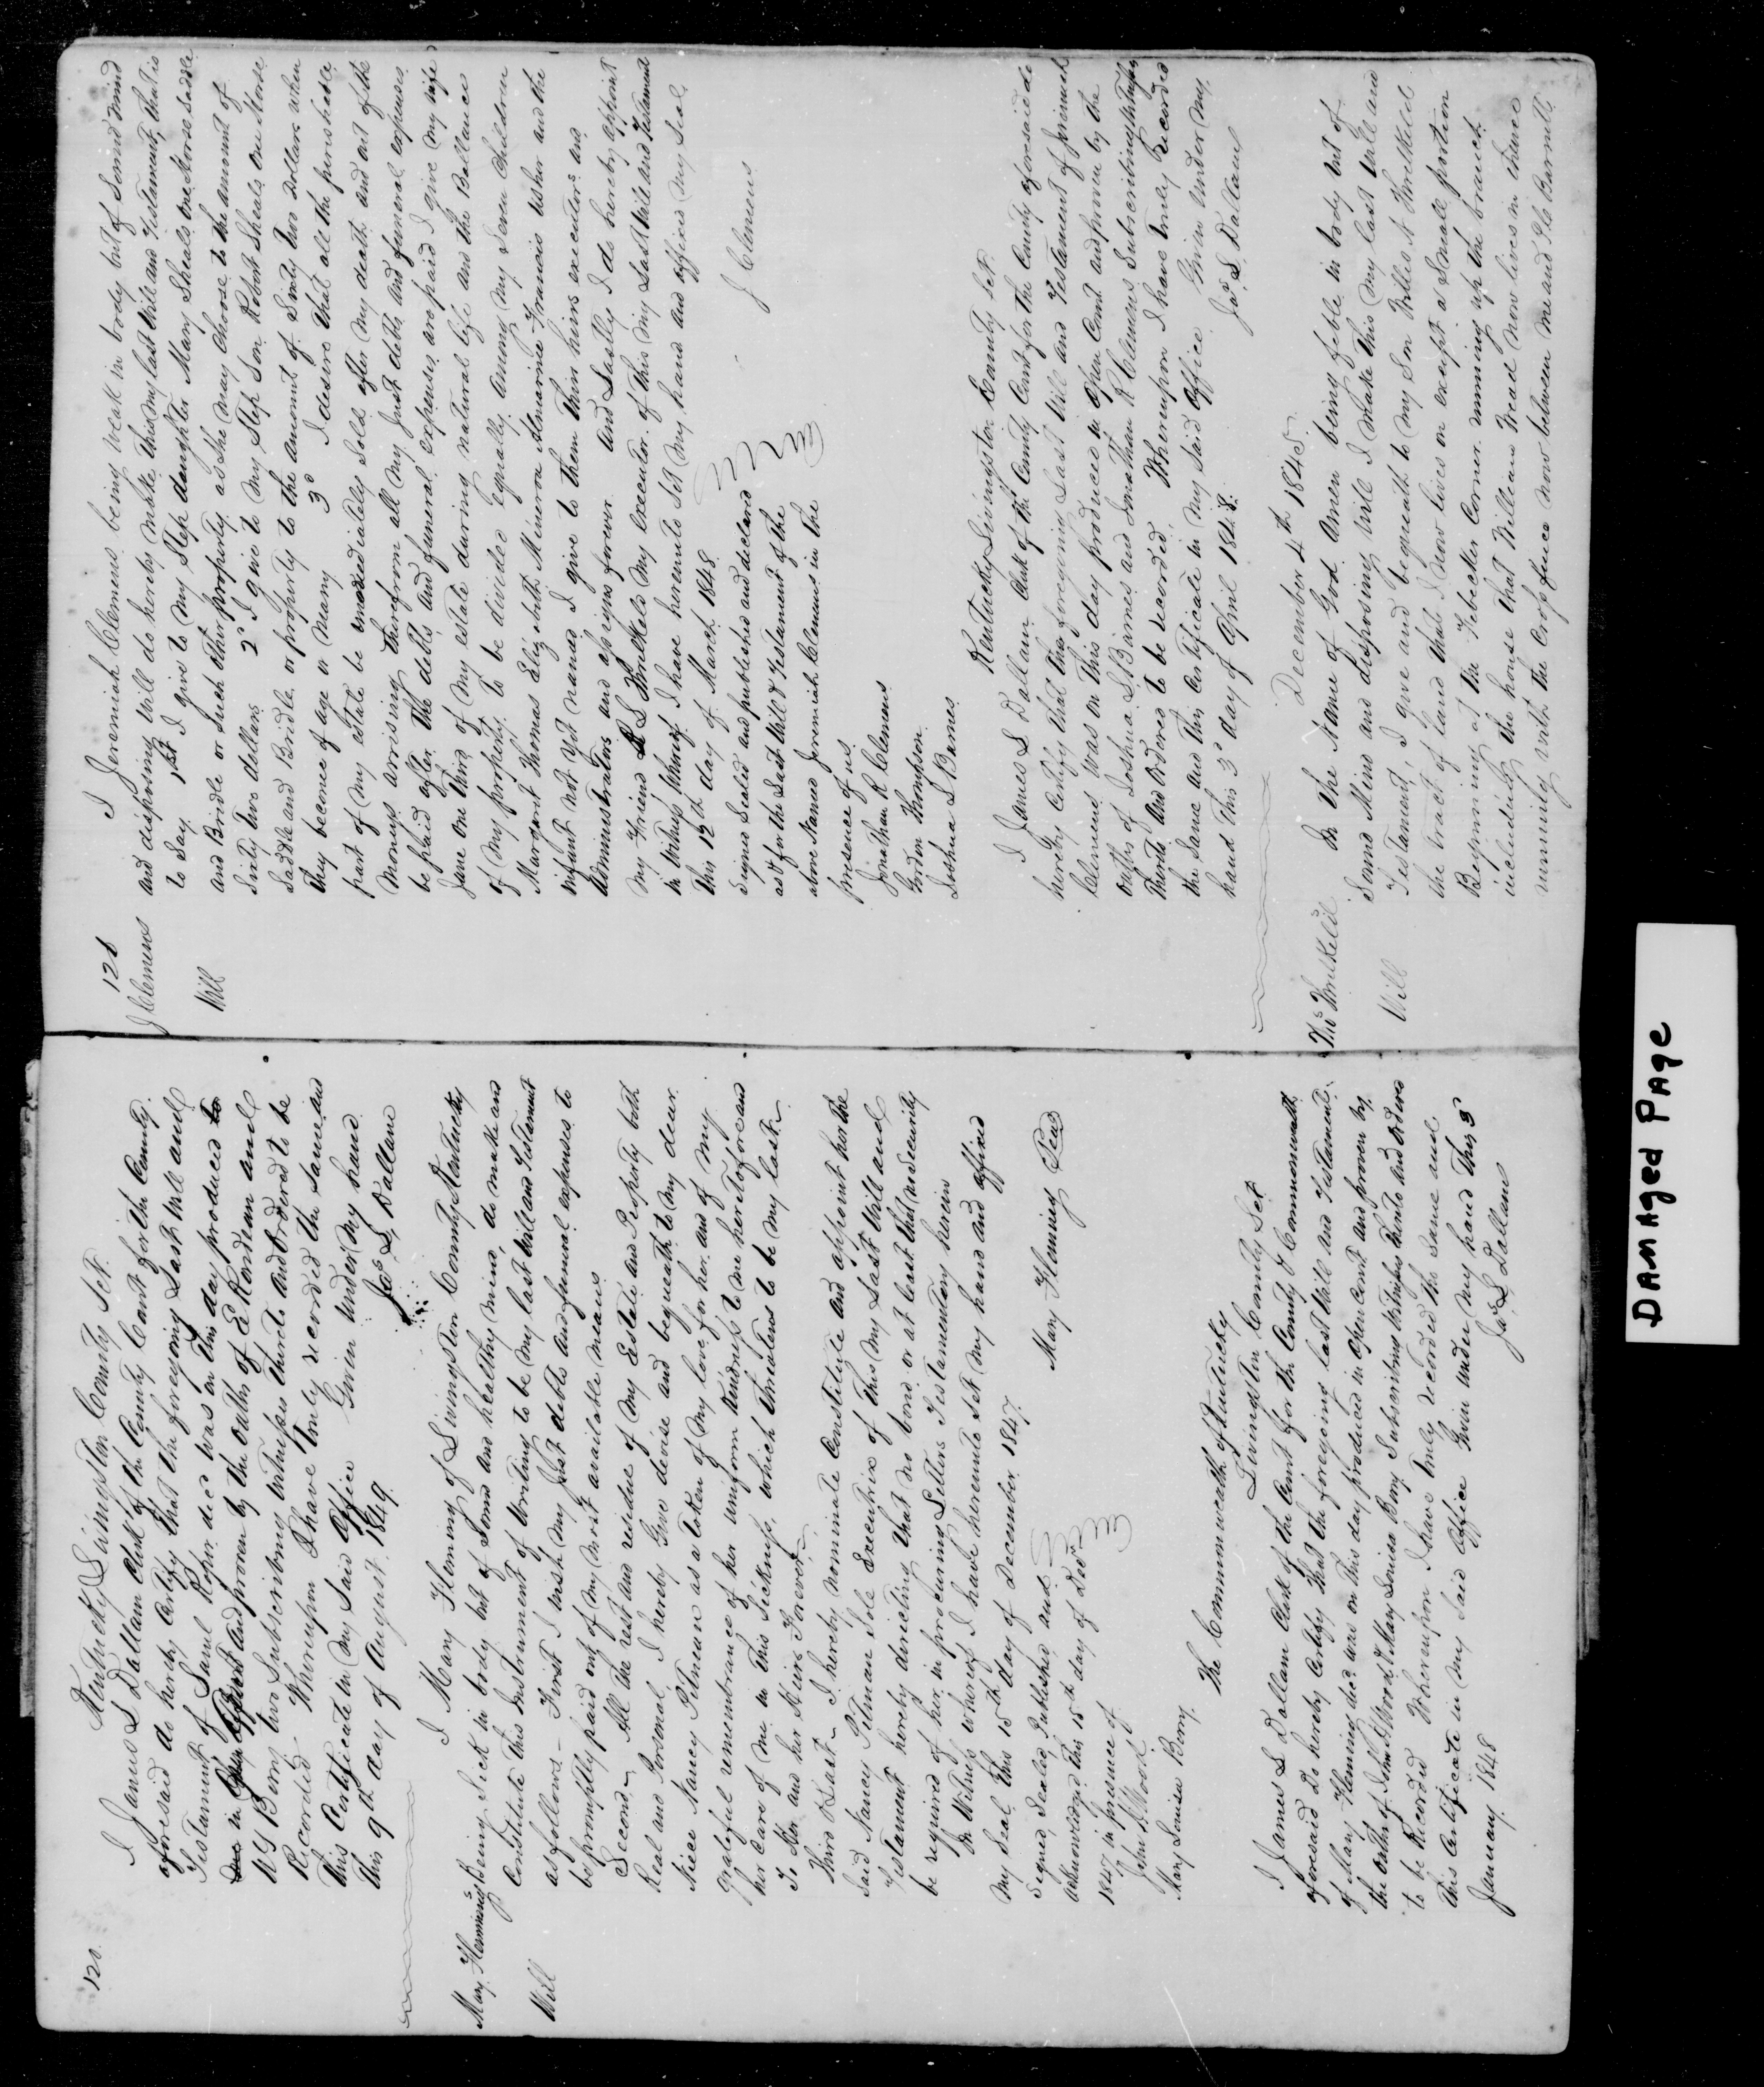 120.
Kentucky Livingston County Sct.
I James L Dallam Clerk of the County Court for the County
aforesaid do hereby Certify that the foregoing Last Will and
Testament of Saml decd was on this day produced to
me in and proven by the oaths of and
W G Berry two Subscribing witnesses thereto and Ordered to be
Recorded Whereupon I have truly recorded the same and
this Certificate in my Said office Given under my hand
this 9th day of August 1849.
Jas L Dallam
Mary Flemings
Will
I Mary Fleming of Livingston County Kentucky
being Sick in body but of Sound and healthy mind, do make and
Constitute this Instrument of writing to be my last Will and Testament
as follows – First I wish my Just debts and funeral expenses to
be promptly paid out of my most available means
Second All the rest and residue of my Estate and Property both
Real and Personal, I hereby Give devise and bequeath to my dear
Niece Nancy Pitman as a token of my love for her and of my
grateful remembrance of her uniform kindness to me heretofore and
her Care of me in this Sickness, which threatens to be my last
To Her and her Heirs Forever
Third & Last – I hereby nominate Constitute and appoint her the
said Nancy Pitman Sole Executrix of this my Last Will and
Testament hereby directing that no bond or at least that no Security
be required of her in procuring Letters Testamentary herein
In Witness whereof I have hereunto Set my hand and affixed
my Seal this 15th day of December 1847.
Mary Fleming Seal
Signed, Sealed, Published and
acknowledged this 15th day of Decr
1847 in presence of
John W Wood
Mary Louisa Berry
The Commonwealth of Kentucky
Livingston County Sct
I James L Dallam Clerk of the Court for the County & Commonwealth
aforesaid Do hereby Certify that the foregoing last Will and Testament
of Mary Fleming decd was on this day produced in open Court and proven by
the oaths of John W Wood & Mary Louisa Berry Subscribing witnesses thereto and Ordered
to be Recorded Whereupon I have truly recorded the same and
this Certificate in my Said office Given under my hand this 3d
January 1848
Jas L Dallam
121
J Clemens
Will
I Jeremiah Clemens being weak in body but of Sound mind
and disposing will do hereby make this my last Will and Testament, that is
to Say 1st I give to my Step daughter Mary Sheals one horse Saddle
and Bridle or Such other property as she may Choose to the amount of
Sixty two dollars 2d I give to my Step Son Robert Sheals one Horse
Saddle and Bridle, or property to the amount of Sixty two dollars when
they become of age or marry 3d I desire that all the perishable
part of my estate be immediately Sold after my death and out of the
moneys arrising therefrom all my Just debts and funeral expenses
be paid after the debts and funeral expenses are paid I give my wife
Jane one third of my estate during natural life and the Ballance
of my property to be divided equally among my Seven Children
Margaret Thomas Elizabeth Minerva Francis and the
infant not yet named I give to them their heirs executors and
administrators and assigns forever And Lastly I do hereby appoint
my friend Threlkeld my executor of this my Last Will and Testament
in witness whereof I have hereunto Set my hand and affixed my Seal
this 12th day of March 1848
J Clemens
Signed Sealed and published and declared
as & for the Last Will & Testament of the
above Named Jeremiah Clemens in the
presence of us
Jonathan R Clemens
Gordon Thompson
Joshua L Barnes
Kentucky Livingston County Sct.
I James L Dallam Clerk of the County Court for the County aforesaid do
hereby Certify that the foregoing Last Will and Testament of Jeremiah
Clemens was on this day produced in Open Court and proven by the
oaths of Joshua L Barnes and Jonathan R Clemens Subscribing witnesses
thereto and Ordered to be recorded, Whereupon I have truly Recorded
the Same and this Certificate in my Said office Given under my
hand this 3d day of April 1848.
Jas. L Dallam
Threlkeld
Will
December 4th 1845.
In the Name of God Amen being feeble in body but of
Sound Mind and disposing Will I make this my last Will and
Testament, I give and bequeath to my Son Willis Threlkeld
the tract of land that I now lives on except a Small portion
Beginning at the Corner running up the branch
including the house that William now lives in thence
running with the Cross fence now between me and Barnett
DAMAged PAge